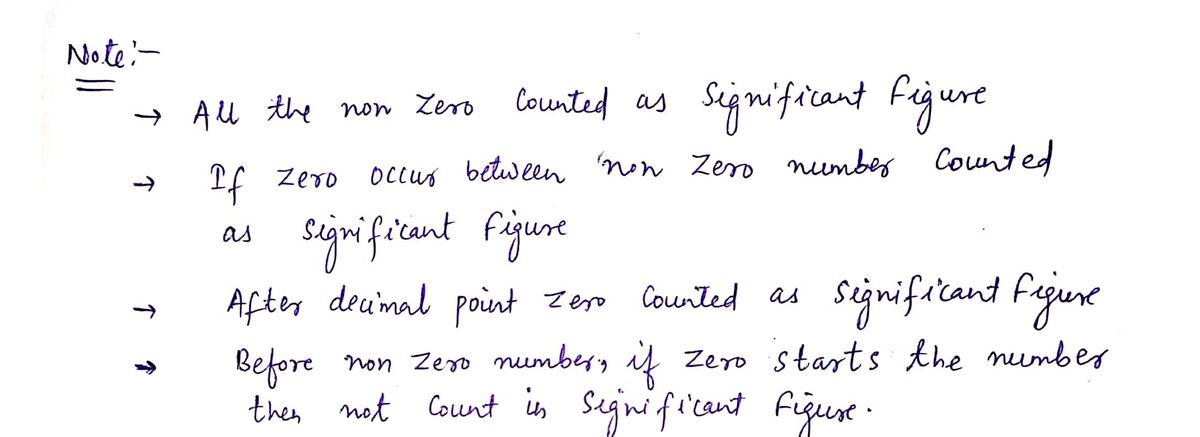 Note:-
→ All the non zero Counted as Significant figure
→ If zero occur between 'non zero number Counted
as significant figure
→ After decimal point zero Counted as significant figure
→ Before non zero number, if zero starts the number
then not Count in Significant figure.